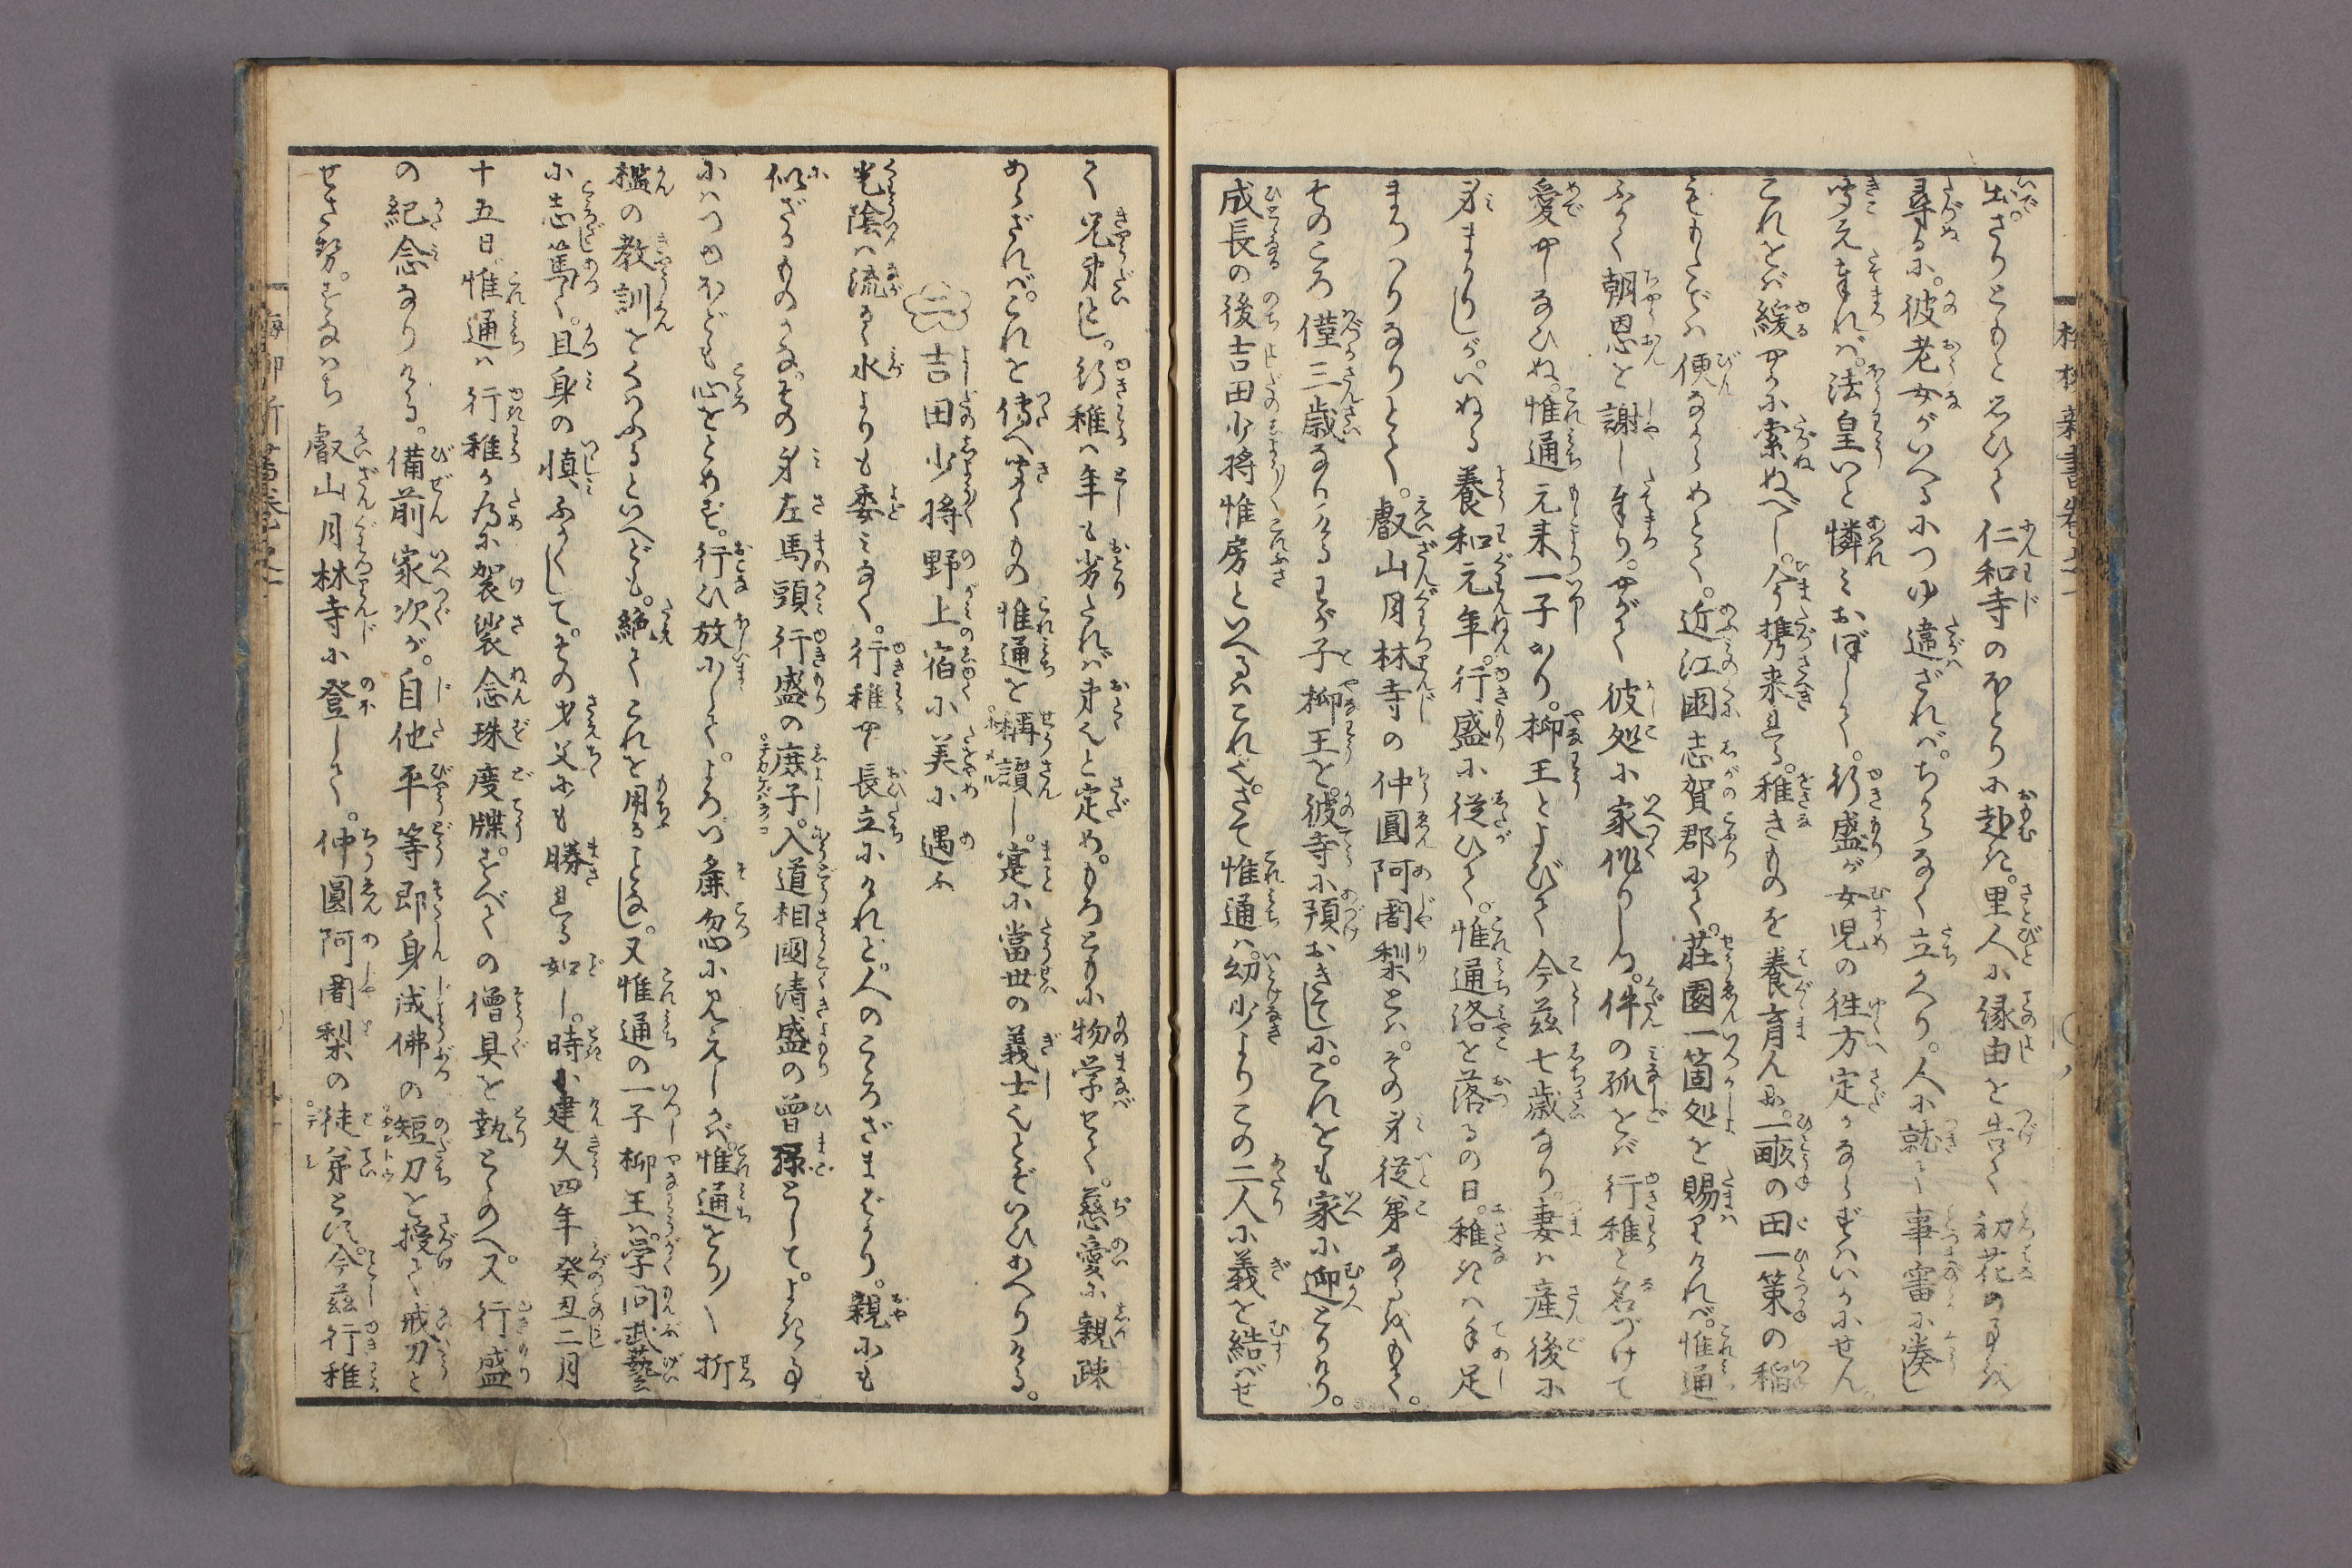 出。さりともとおもひて仁和寺のほとりに赴き。里人に縁由を告て初花の事を
尋るに。彼老女がいへるにつゆ違ざれば。ちからなく立かへり。人に就て事審に奏し
聞え奉れば。法皇いと憐みおぼして。行盛が女児の往方定かならずはいかにせん
これをば緩やかに索ぬべし。今携来れる。稚きものを養育んに。一畝の田一束の稲
をもしたでは便なからめとて。近江国志賀郡にて。荘園一箇処を賜りければ。惟通
ふかく朝恩を謝し奉り。やがて彼処に家作りしつ。件の孤をば行稚と名づけて
愛やしなひぬ。惟通元来一子あり。柳王とよびて今茲七歳なり。妻は産後に
身まかりしが。いぬる養和元年。行盛に従ひて。惟通洛を落るの日。稚きは手足
まつはりなりとて。叡山月林寺の仲圓阿闍梨とは。その身従弟なるをもて。
そのころ僅三歳なりけるわが子柳王を。彼寺に預おきしに。これをも家に迎とりけり。
成長の後吉田少将惟房といへるはこれ也。さて惟通は。幼少よりこの二人に義を結ばせ
て兄弟とし。行稚は年も劣たれば弟也と定め。もろともに物学せて。慈愛に親疎
めらざれば。これを傳へ聞くもの惟通を稱讃し。寔に當世の義士也とぞいひあへりける。
二 吉田少将野上宿に美に遇ふ
光陰は流るゝ水よりも委みなく。行稚やゝ長立にけれど。人のこゝろざまばかり。親にも
似ざるものかな。その身左馬頭行盛の庶子。入道相國清盛の曽孫として。よき事
にはつゆほども心をとめず。行ひ放にして。よろづ麁忽に見えしかば。惟通をり〳〵折
檻の教訓をくはふるといへども。絶てこれを用ることなし。又惟通の一子柳王は。学問武藝
に志篤く。且身の慎ふかくして。その才父にも勝れる如し。時に建久四年癸丑二月
十五日。惟通は行稚が為に袈裟念珠度牒。すべての僧具を執とゝのへ。又行盛
の紀念なりける。備前家次が。自他平等即身成佛の短刀を授て戒刀と
せさせ。すなはち叡山月林寺に登して。仲圓阿闍梨の徒弟とす。今茲行稚